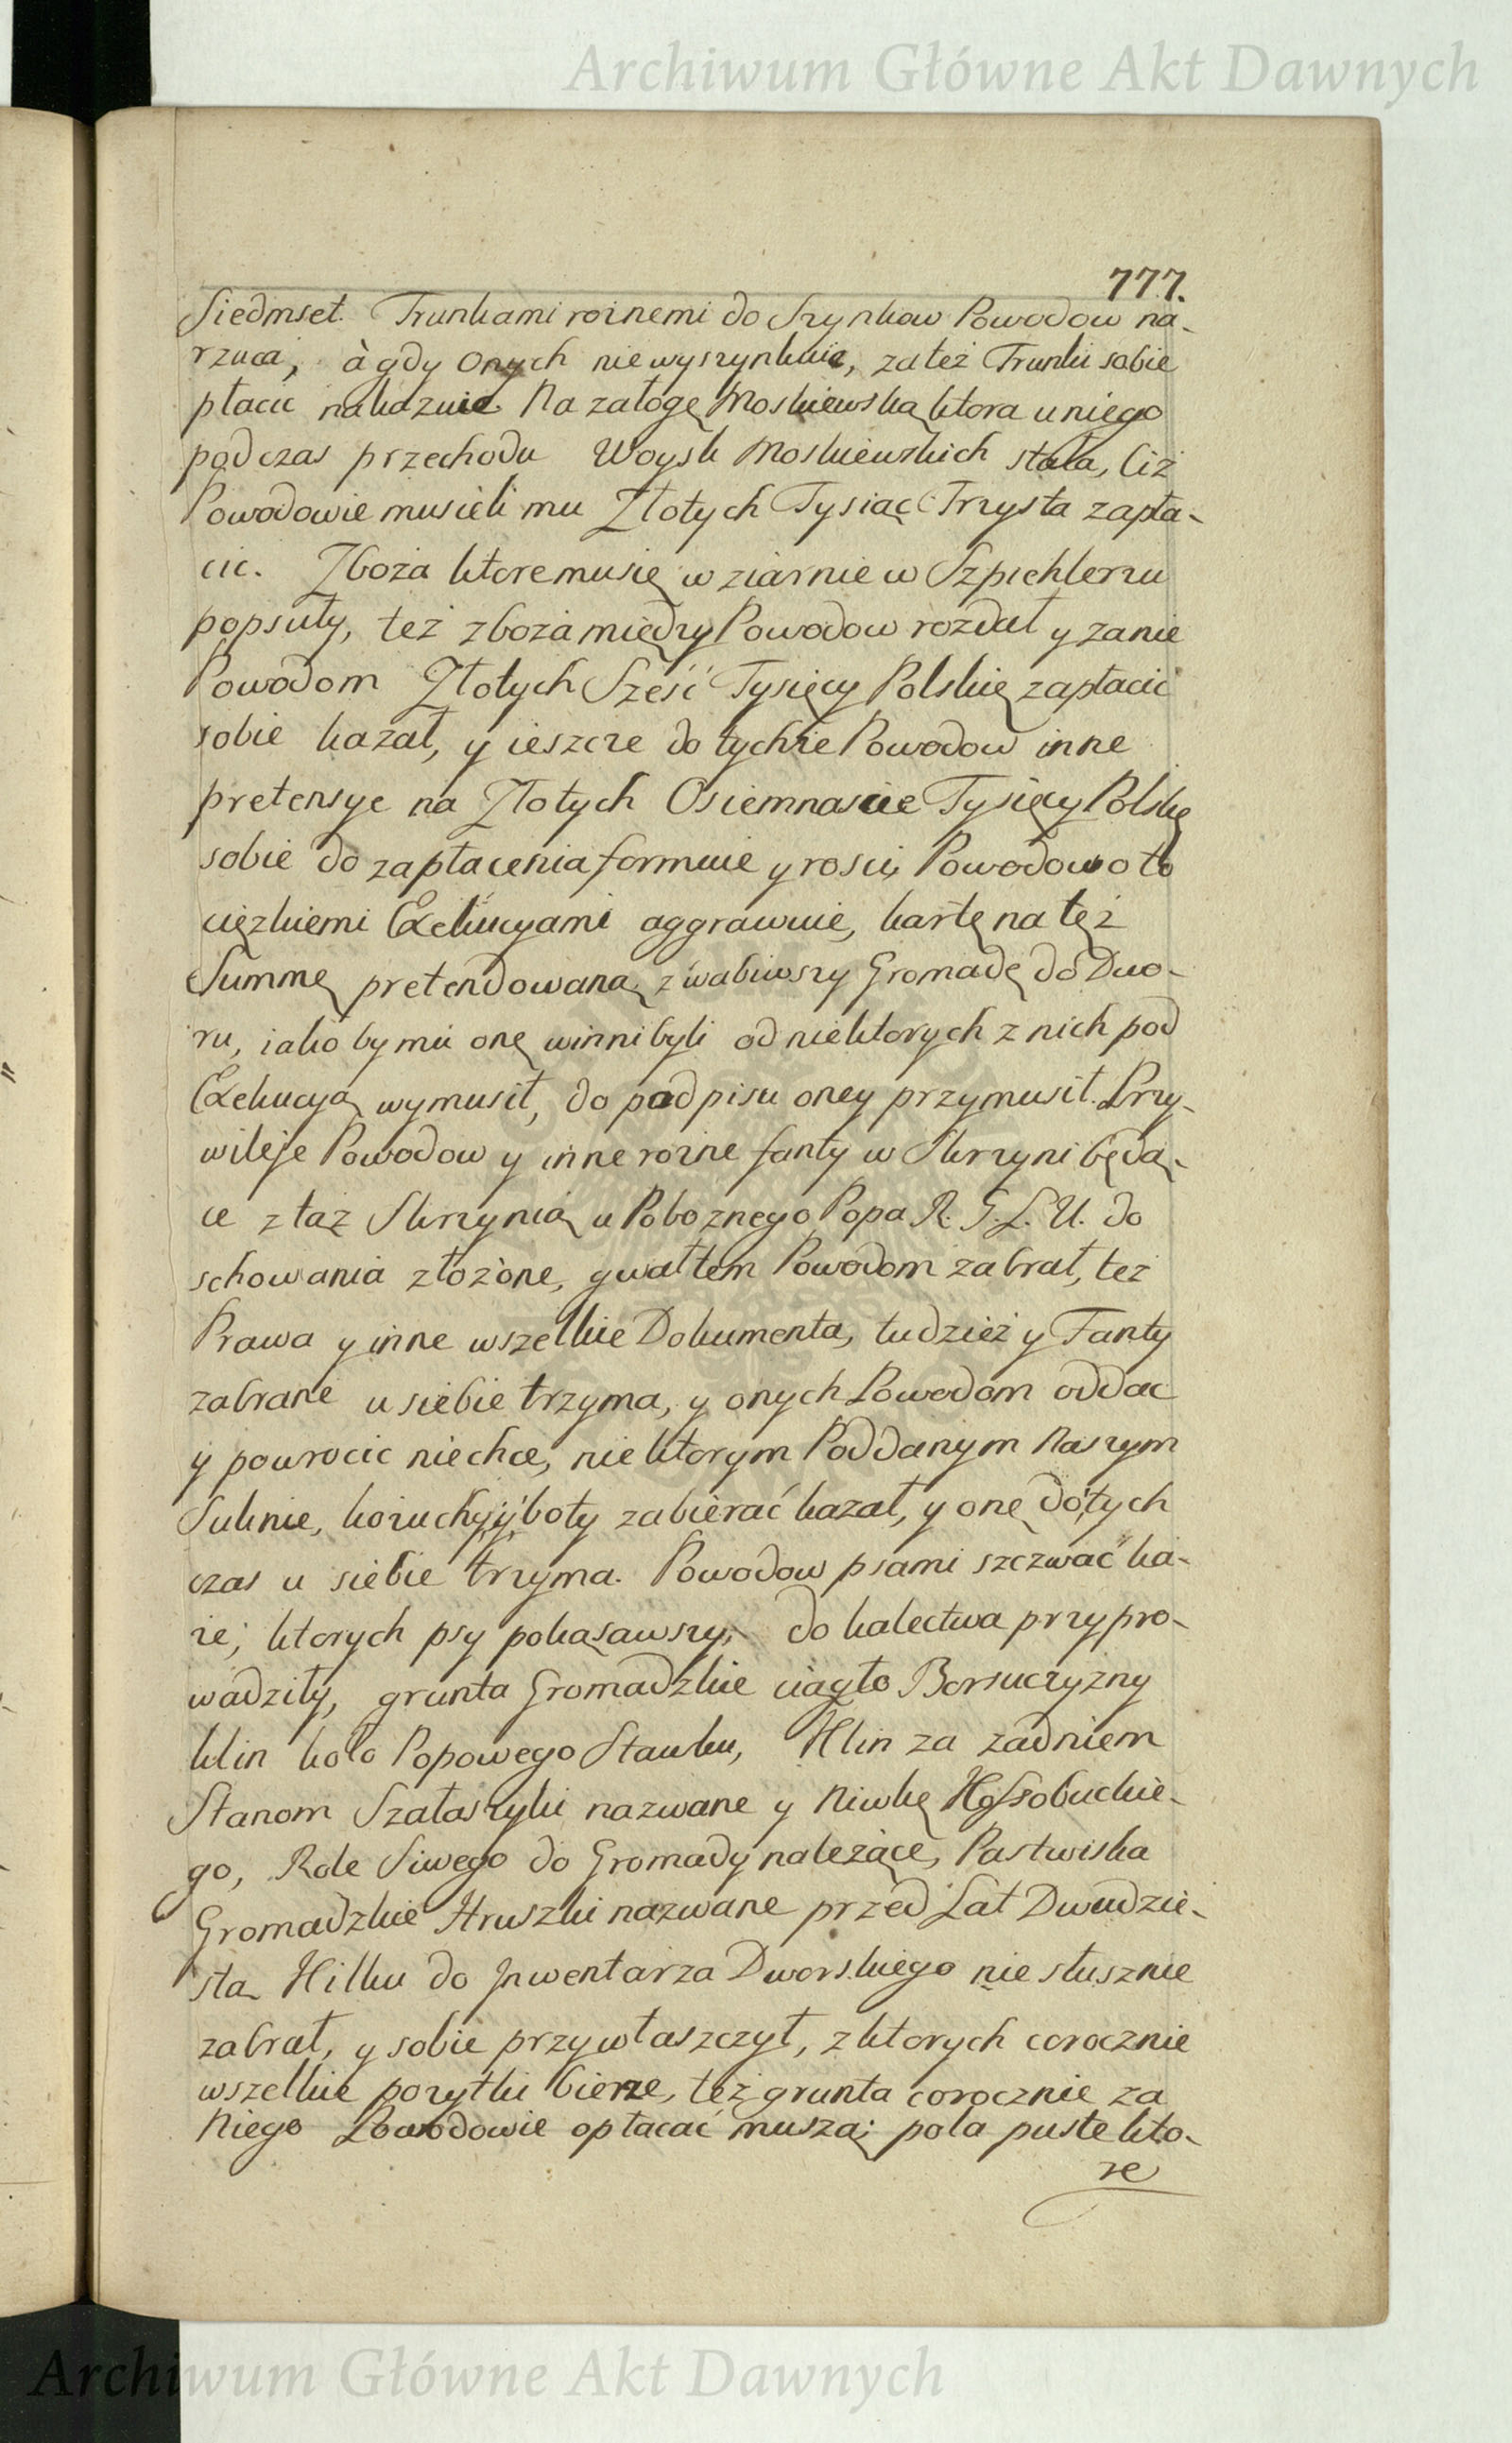 Archiwum Główne Akt Dawnych
777.
Siedmset. Trunkami rożnemi do Szynkow Powodow na-
rzuca, à gdy onych nie wyszynkuie, za też Trunki sobie
płacic nakazuie. Na załogę Moskiewską ktora u niego
podczas przechodu Woysk Moskiewskich stała, Ciż
Powodowie musieli mu Złotych Tysiąc Trzysta zapła-
cic. Zboża ktore mu się w ziarnie w Szpichlerzu
popsuły, też zboża między Powodow rozdał y za nie
Powodom Złotych Sześć Tysięcy Polskię zapłacić
sobie kazał, y ieszcze do tychże Powodow inne
pretensye na Złotych Osiemnascie Tysięcy Polskię
sobie do zapłacenia formuie y rosci, Powodow o to
cięzkiemi Exekucyami aggrawuie, kartę na tęż
Summę pretendowaną, zwabiwszy Gromadę do Dwo-
ru, iako by mu onę winni byli od niektorych z nich pod
Exekucyą wymusił, do podpisu oney przymusił. Przy-
wileje Powodow y inne rożne fanty w Skrzyni będą-
ce z tąż Skrzynią u Pobożnego Popa R. G. L. U. do
schowania złożone, gwałtem Powodom zabrał, też
Prawa y inne wszelkie Dokumenta, tudzież y Fanty
zabrane u siebie trzyma, y onych Powodom oddac
y powrocic niechce, niektorym Poddanym Naszym
Suknie, kożuchy, y boty zabierać kazał, y onę dotych
czas u siebie trzyma. Powodow psami szczwać ka-
że, ktorych psy pokąsawszy, do kalectwa przypro-
wadziły, grunta Gromadzkie ciągło Borsuczyzny
klin koło Popowego Stawku, Klin za zadniem
Stanom Szałaszyki nazwane y Niwkę
go, Role Siwego do Gromady należące, Pastwiska
Gromadzkie Hruszki nazwane przed Lat Dwudzie-
stą Kilku do Inwentarza Dworskiego niesłusznie
zabrał, y sobie przywłaszczył, z ktorych corocznie
wszelkie pożytki bierze, też grunta corocznie za
Niego Powodowie opłacać muszą; pola puste kto-
re
Archiwum Główne Akt Dawnych